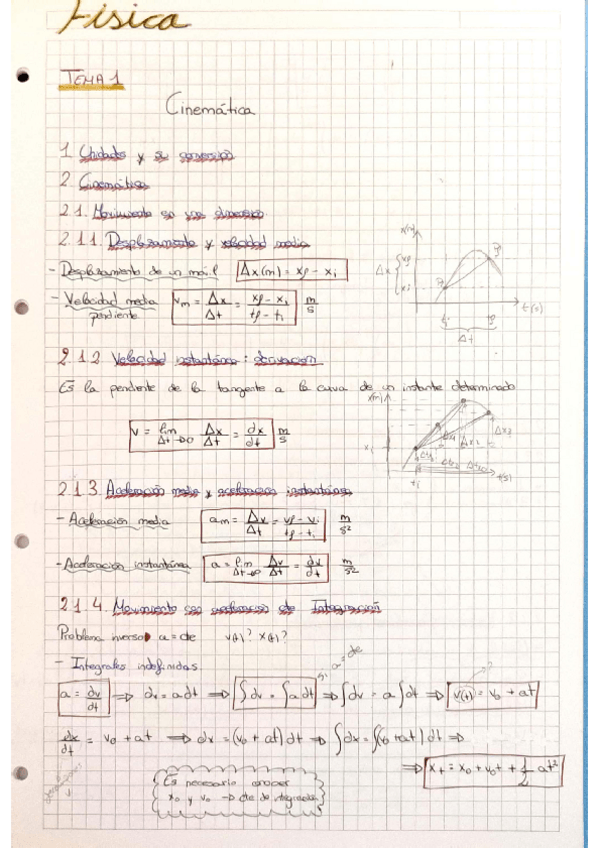 Física
TEMA 1
Cinemática
1. Unidades y su conversión
2. Cinemática
2.1. Movimiento en una dimensión
2.1.1. Desplazamiento y velocidad media
- Desplazamiento de un móvil Δx(m) = xf - xi
- Velocidad media vm = Δx/Δt = (xf - xi)/(tf - ti) m/s
pendiente
x(m)
Δx { xf xi
t(s)
ti tf
Δt
2.1.2 Velocidad instantánea: derivación
Es la pendiente de la tangente a la curva de un instante determinado
v = lim Δt→0 Δx/Δt = dx/dt m/s
x(m)
xi
t(s)
ti
2.1.3. Aceleración media y aceleración instantánea
- Aceleración media am = Δv/Δt = (vf - vi)/(tf - ti) m/s²
- Aceleración instantánea a = lim Δt→0 Δv/Δt = dv/dt m/s²
2.1.4. Movimiento con aceleración cte Integración
Problema inverso a = cte v(t)? x(t)?
- Integrales indefinidas
si a = cte
a = dv/dt ⇒ dv = a dt ⇒ ∫dv = ∫a dt ⇒ ∫dv = a∫dt ⇒ v(t) = v0 + at
dx/dt = v0 + at ⇒ dx = (v0 + at)dt ⇒ ∫dx = ∫(v0 + at)dt ⇒
⇒ xt = x0 + v0t + 1/2 at²
Es necesario conocer
x0 y v0 → cte de integración